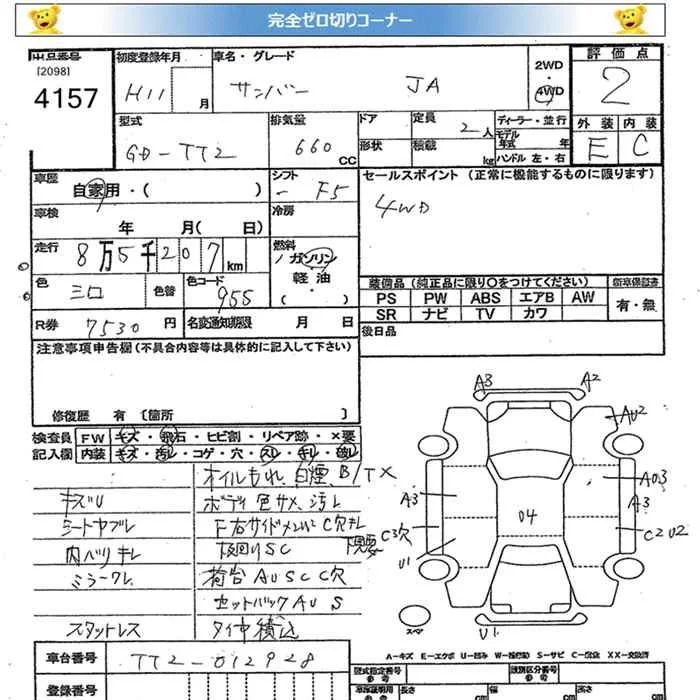 完全ゼロ切りコーナー
出品番号
[2098]
4157
初度登録年月
H11 月
車名・グレード
サンバー JA
2WD
・
4WD
評価点
2
型式
GD-TT2
排気量
660 CC
ドア
形状
定員 2 人
積載 kg
ディーラー・並行
モデル年式 年
ハンドル 左・右
外装 内装
E C
車歴
自家用・( )
シフト
F5
セールスポイント (正常に機能するものに限ります)
4WD
車検
年 月( 日)
冷房
走行
8万5千207km
燃料
ガソリン
軽油
・( )
色
シロ 色替
色コード
955
装備品(純正品に限り○をつけてください)
新車保証書
PS PW ABS エアB AW
SR ナビ TV カワ
有・無
R券 7530円
名変通知期限 月 日
後日品
注意事項申告欄(不具合内容等は具体的に記入して下さい)
修復歴 有 [箇所 ]
検査員 FW キズ・飛石・ヒビ割・リペア跡・×要
記入欄 内装 キズ・汚レ・コゲ・穴・スレ・キレ・破レ
オイルもれ、白煙、B/TX
キズU ボディ色サメ、汚レ
シートヤブレ F右サイドメンバーC欠キレ
内バリキレ
ミラーワレ 荷台AUSCC欠
セットバックAUS
スタットレス タイヤ積込
A3 A2
AU2
A3 A03
A3
04
C3欠 C2U2
U1
スペア
U1
A-キズ E-エクボ U-凹み W-補修跡 S-サビ C-腐食 XX-交換済
車台番号 TT2-012928
登録番号
型式指定番号 参考
類別区分番号 参考
長さ cm 幅 cm 高さ cm